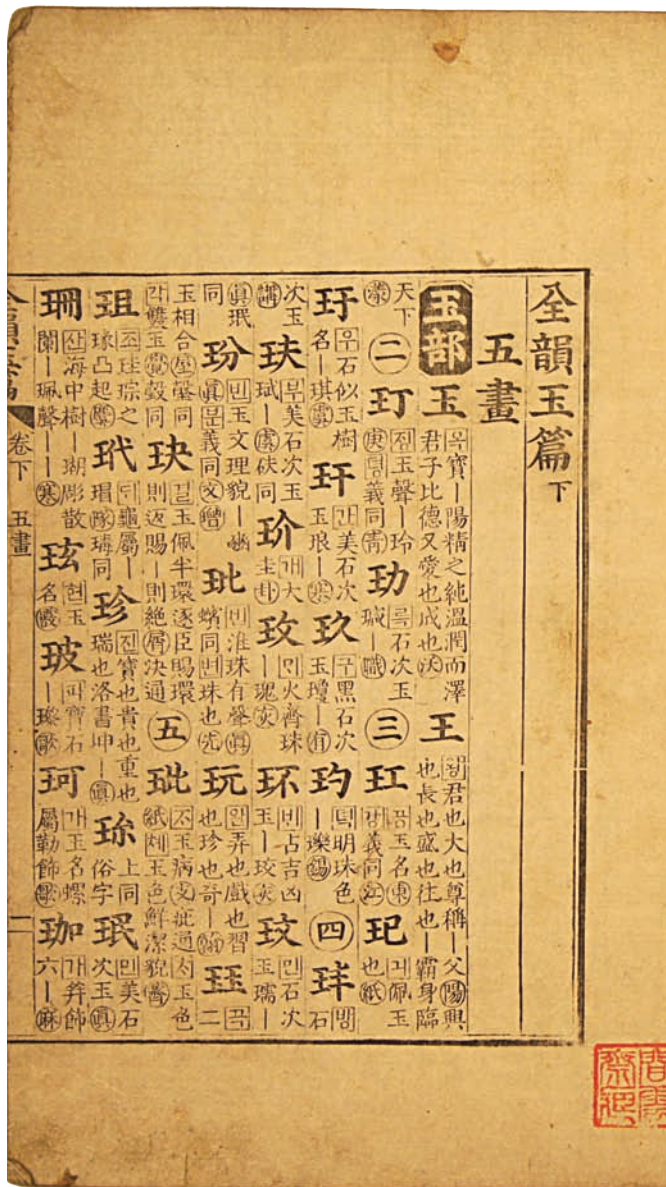 全韻玉篇下
五畫
玉部 玉 옥寶ㅣ陽精之純溫潤而澤君子比德又愛也成也沃 王 왕君也大也尊稱ㅣ父陽興也長也盛也往也ㅣ霸身臨
天下漾 二 玎 졍玉聲ㅣ玲庚뎡義同靑 玏 륵石次玉瑊ㅣ職 三 玒 공玉名東강義同江 玘 긔佩玉也紙
玗 우石似玉樹名ㅣ琪虞 玕 간美石次玉琅ㅣ寒 玖 구黑石次玉瓊ㅣ有 玓 뎍明珠色ㅣ瓅錫 四 玤 방石
次玉講 玞 부美石次玉珷ㅣ虞砆同 玠 개大圭卦 玫 火齊珠ㅣ瑰灰 环 占吉凶玉ㅣ珓灰 玟 민石次玉瓀ㅣ
眞珉同 玢 빈玉文理貌ㅣ豳眞문義同文 玭 빈淮珠有聲眞蠙同변珠也先 玩 완弄也戲也習也珍也奇ㅣ翰 玨 곡二
玉相合屋瑴同각雙玉覺瑴同 玦 결玉佩半環逐臣賜環則返賜ㅣ則絶屑決通 五 玼 玉病支疵通玉色紙쳬玉色鮮潔貌薺
珇 조珪琮之瑑凸起麌 玳 龜屬ㅣ瑁隊瑇同 珍 진寶也貴也重也瑞也洛書坤ㅣ眞 珎 上同俗字 珉 민美石次玉眞
珊 산海中樹ㅣ瑚彫散闌ㅣ珮聲ㅣㅣ寒 玹 현玉名霰 玻 파寶石ㅣ瓈歌 珂 가玉名螺屬勒飾歌 珈 가笄飾六ㅣ麻
全韻玉篇 卷下 五畫 一